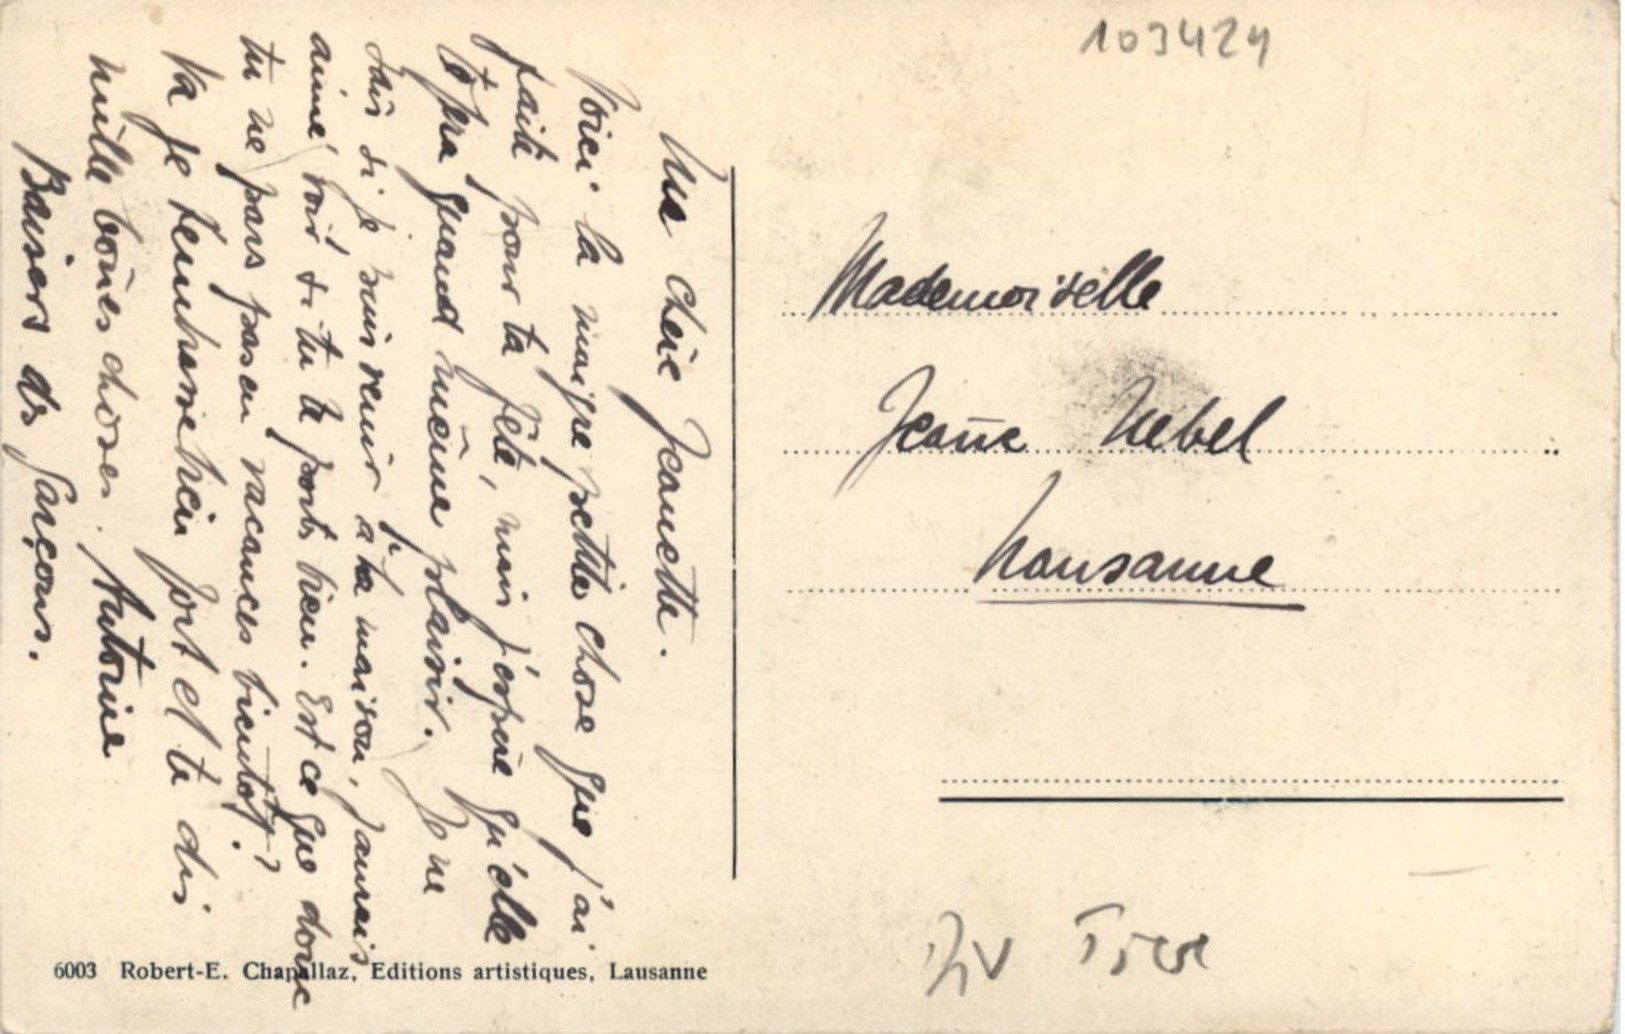 Ma chère Jeanette.
Voici la maigre petite chose que j'ai
faite pour ta fête, mais j'éspère qu'elle
te fera quand même plaisir. Je ne
sais si je puis venir à ta maison, j'aurais
aimé voir si tu te ports bien. Est ce que donc
tu ne pars pas en vacances bientôt?
Va je t'embrasse bien fort et te dis
mille bones choses. Antoine
Baisers ds garçons.
103424
Mademoiselle
Jeañe Nebel
Lausanne
Div Tiere
6003 Robert-E. Chapallaz, Editions artistiques, Lausanne